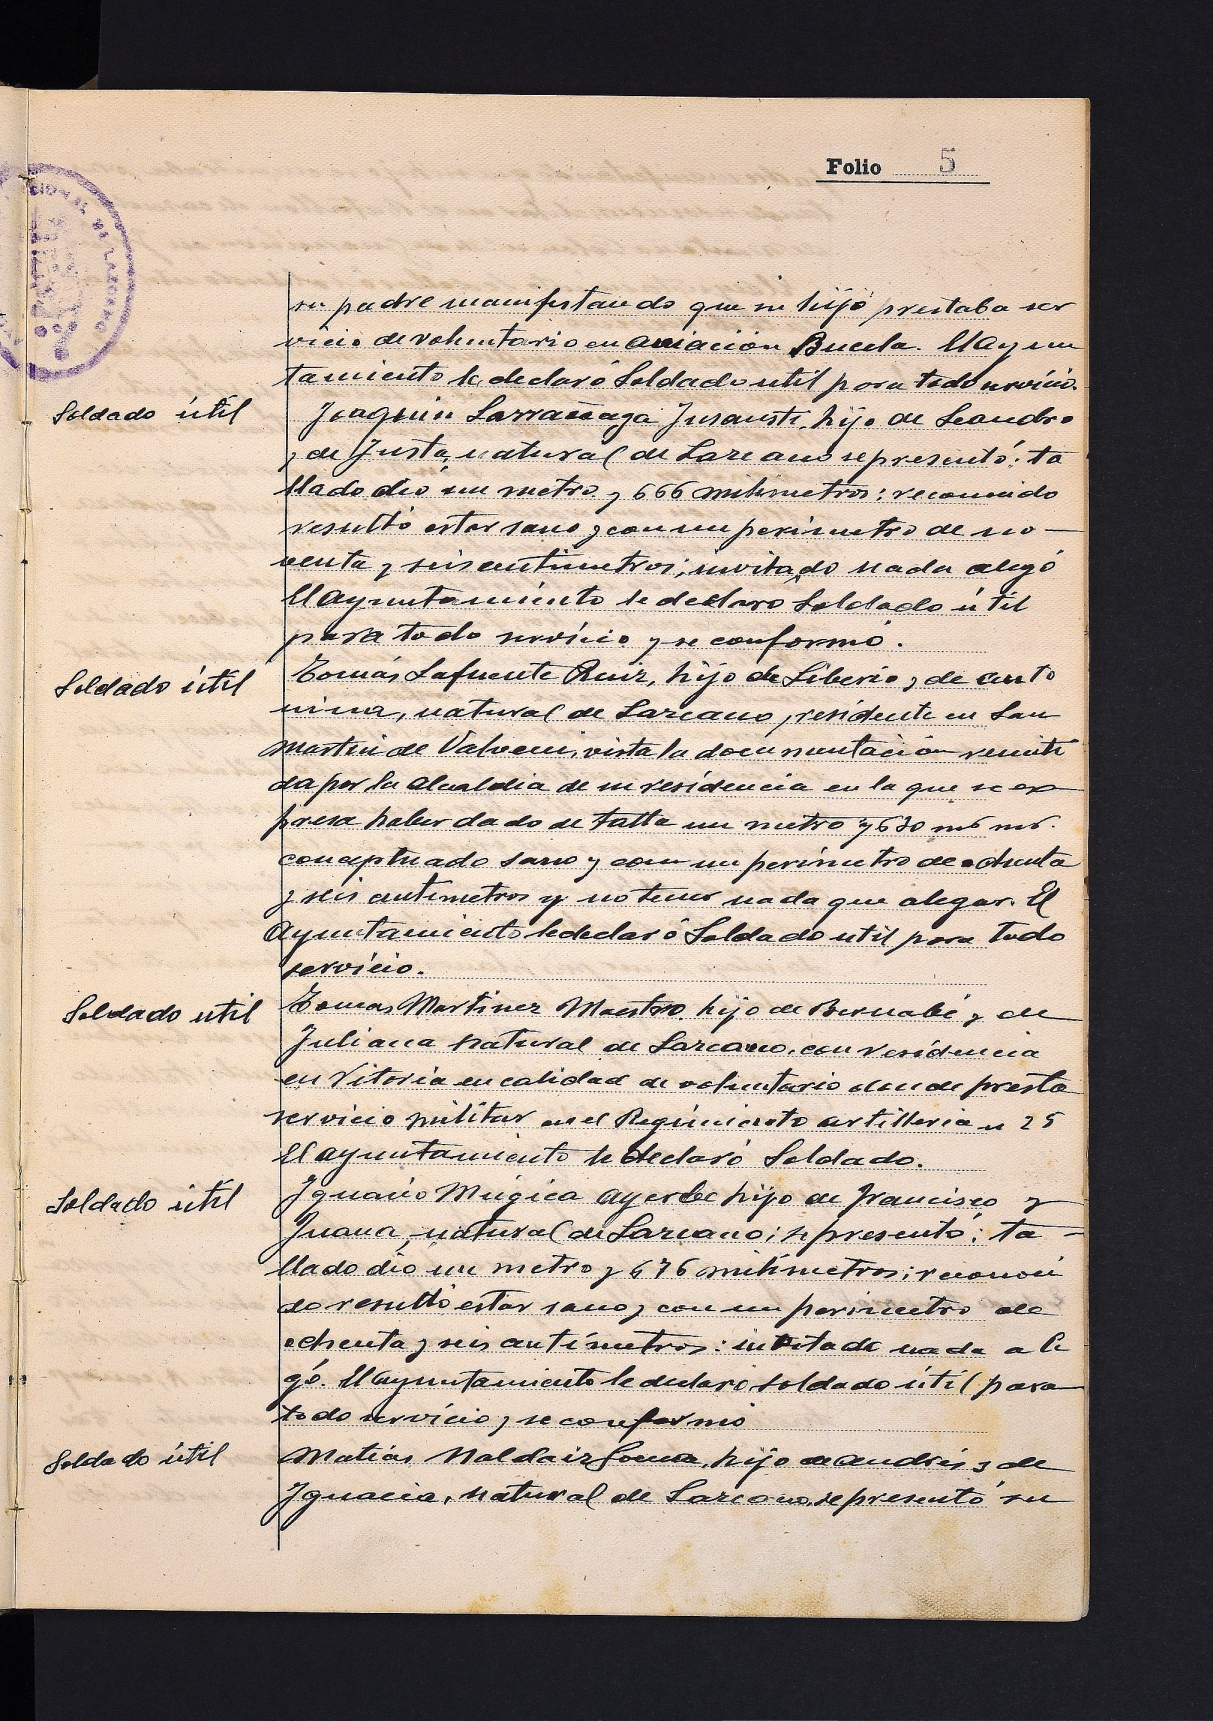 Folio 5
su padre manifestando que su hijo prestaba ser
vicio de voluntario en aviación El ayun
tamiento le declaró Soldado util para todo servicio.
Soldado útil
Joaquin Larrañaga hijo de Leandro
y de Justa, natural de Lazcano se presentó: ta
llado dió un metro y 666 milimetros: reconocido
resultó estar sano y con un perimetro de no—
venta y seis centimetros; invitado nada alegó
El Ayuntamiento le declaró Soldado útil
para todo servicio y se conformó.
Soldado útil
Tomás Lafuente Ruiz, hijo de Liberio y de anto
nina, natural de Lazcano, residente en San
Martin de vista la documentación remiti
da por la alcaldia de su residencia en la que se ex
presa haber dado de talla un metro y 630 m. m.
conceptuado sano y con un perimetro de ochenta
y seis centimetros y no tener nada que alegar. El
Ayuntamiento le declaró Soldado util para todo
servicio.
Soldado util
Tomas Martinez Maestro, hijo de Bernabé y de
Juliana natural de Lazcano, con residencia
en Vitoria en calidad de voluntario donde presta
servicio militar en el Regimiento artilleria n 25
El ayuntamiento le declaró Soldado.
Soldado útil
Ignacio Mugica Ayerbe hijo de Francisco y
Juana, natural de Lazcano; se presentó: ta—
llado dió un metro y 676 milimetros; reconoci
do resultó estar sano y con un perimetro de
ochenta y seis centimetros: invitado nada ale
gó. El ayuntamiento le declaró soldado útil para
todo servicio y se conformó
Soldado útil
Matias hijo de Andrés y de
Ignacia, natural de Lazcano, se presentó su